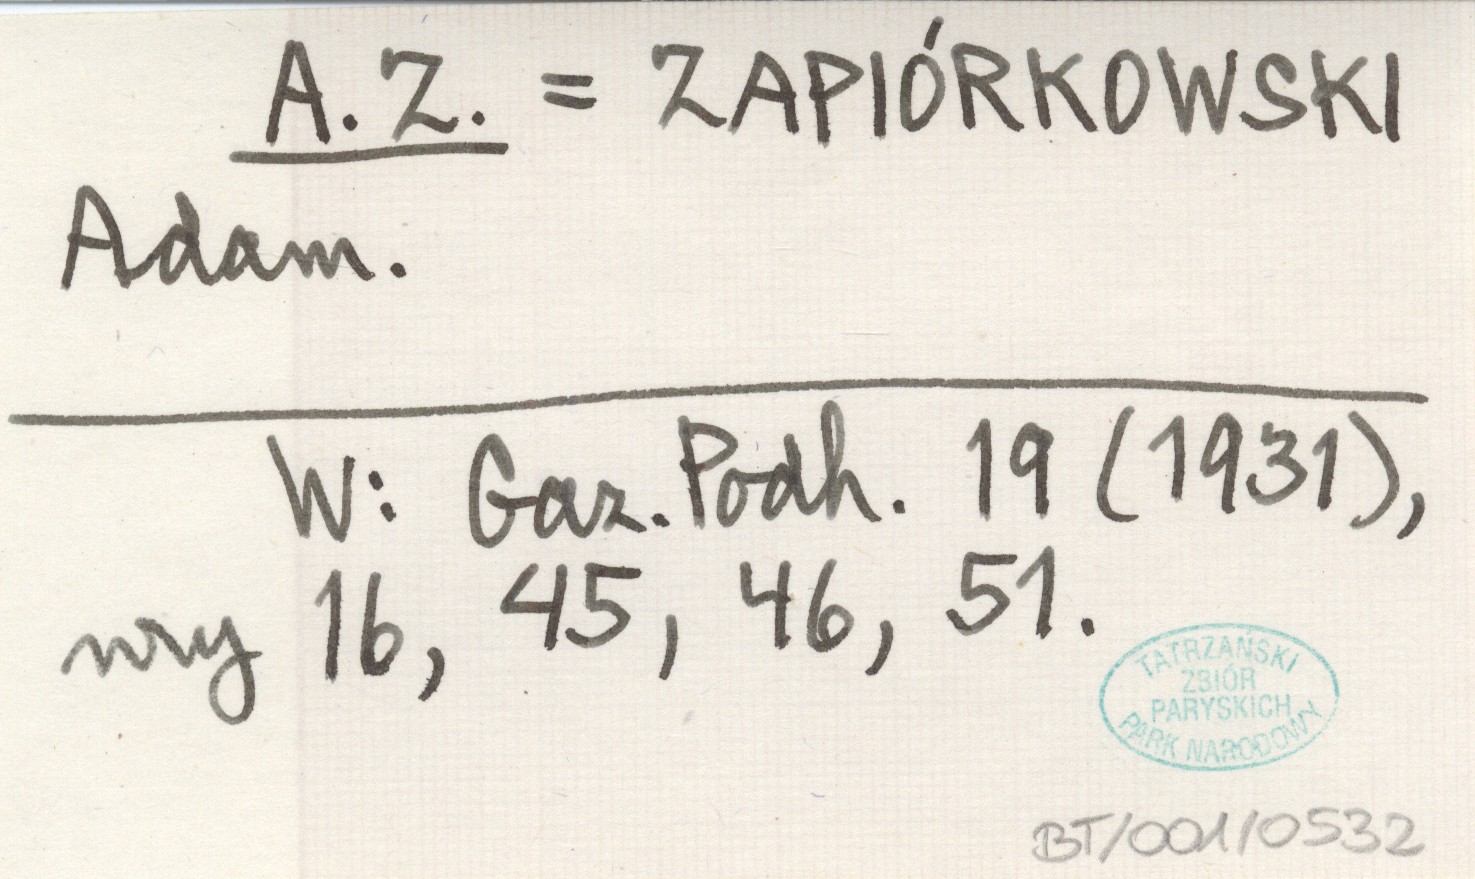 A.Z. = ZAPIÓRKOWSKI
Adam.
W: Gaz. Podh. 19 (1931),
nry 16, 45, 46, 51.
TATRZAŃSKI
ZBIÓR
PARYSKICH
PARK NARODOWY
BT/001/0532